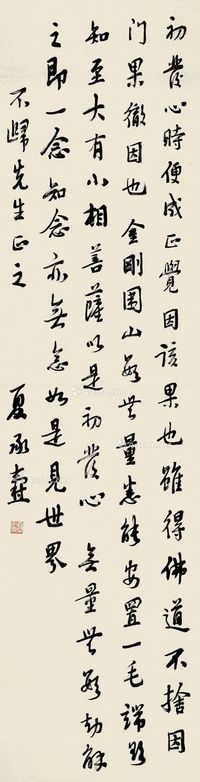 初發心時便成正覺因該果也雖得佛道不捨因
門果徹因也金剛圍山數無量悉能安置一毛端欲
知至大有小相菩薩以是初發心無量無數劫解
之即一念知念亦無念如是見世界
不歸先生正之
夏承燾